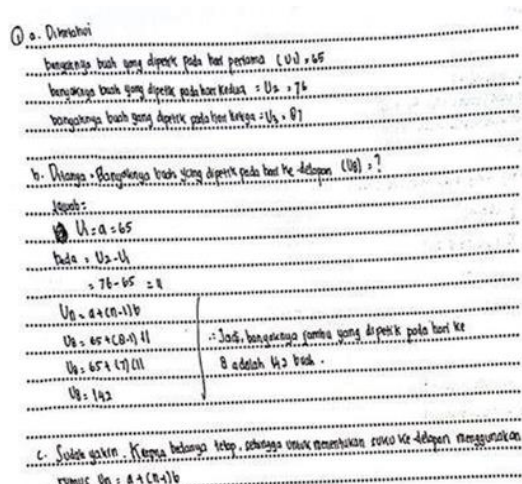 ① a. Diketahui
banyaknya buah yang dipetik pada hari pertama (U1) = 65
banyaknya buah yang dipetik pada hari kedua = U2 = 76
banyaknya buah yang dipetik pada hari ketiga = U3 = 87
b. Ditanya = Banyaknya buah yang dipetik pada hari ke-delapan (U8) = ?
Jawab =
U1 = a = 65
beda = U2 - U1
= 76 - 65 = 11
Un = a + (n-1) b
U8 = 65 + (8-1) 11
∴ Jadi, banyaknya rambu yang dipetik pada hari ke
U8 = 65 + (7) (11)
8 adalah 142 buah.
U8 = 142
c. Sudah yakin. Karena bedanya tetap, sehingga untuk menentukan suku ke-delapan menggunakan
rumus Un = a + (n-1) b